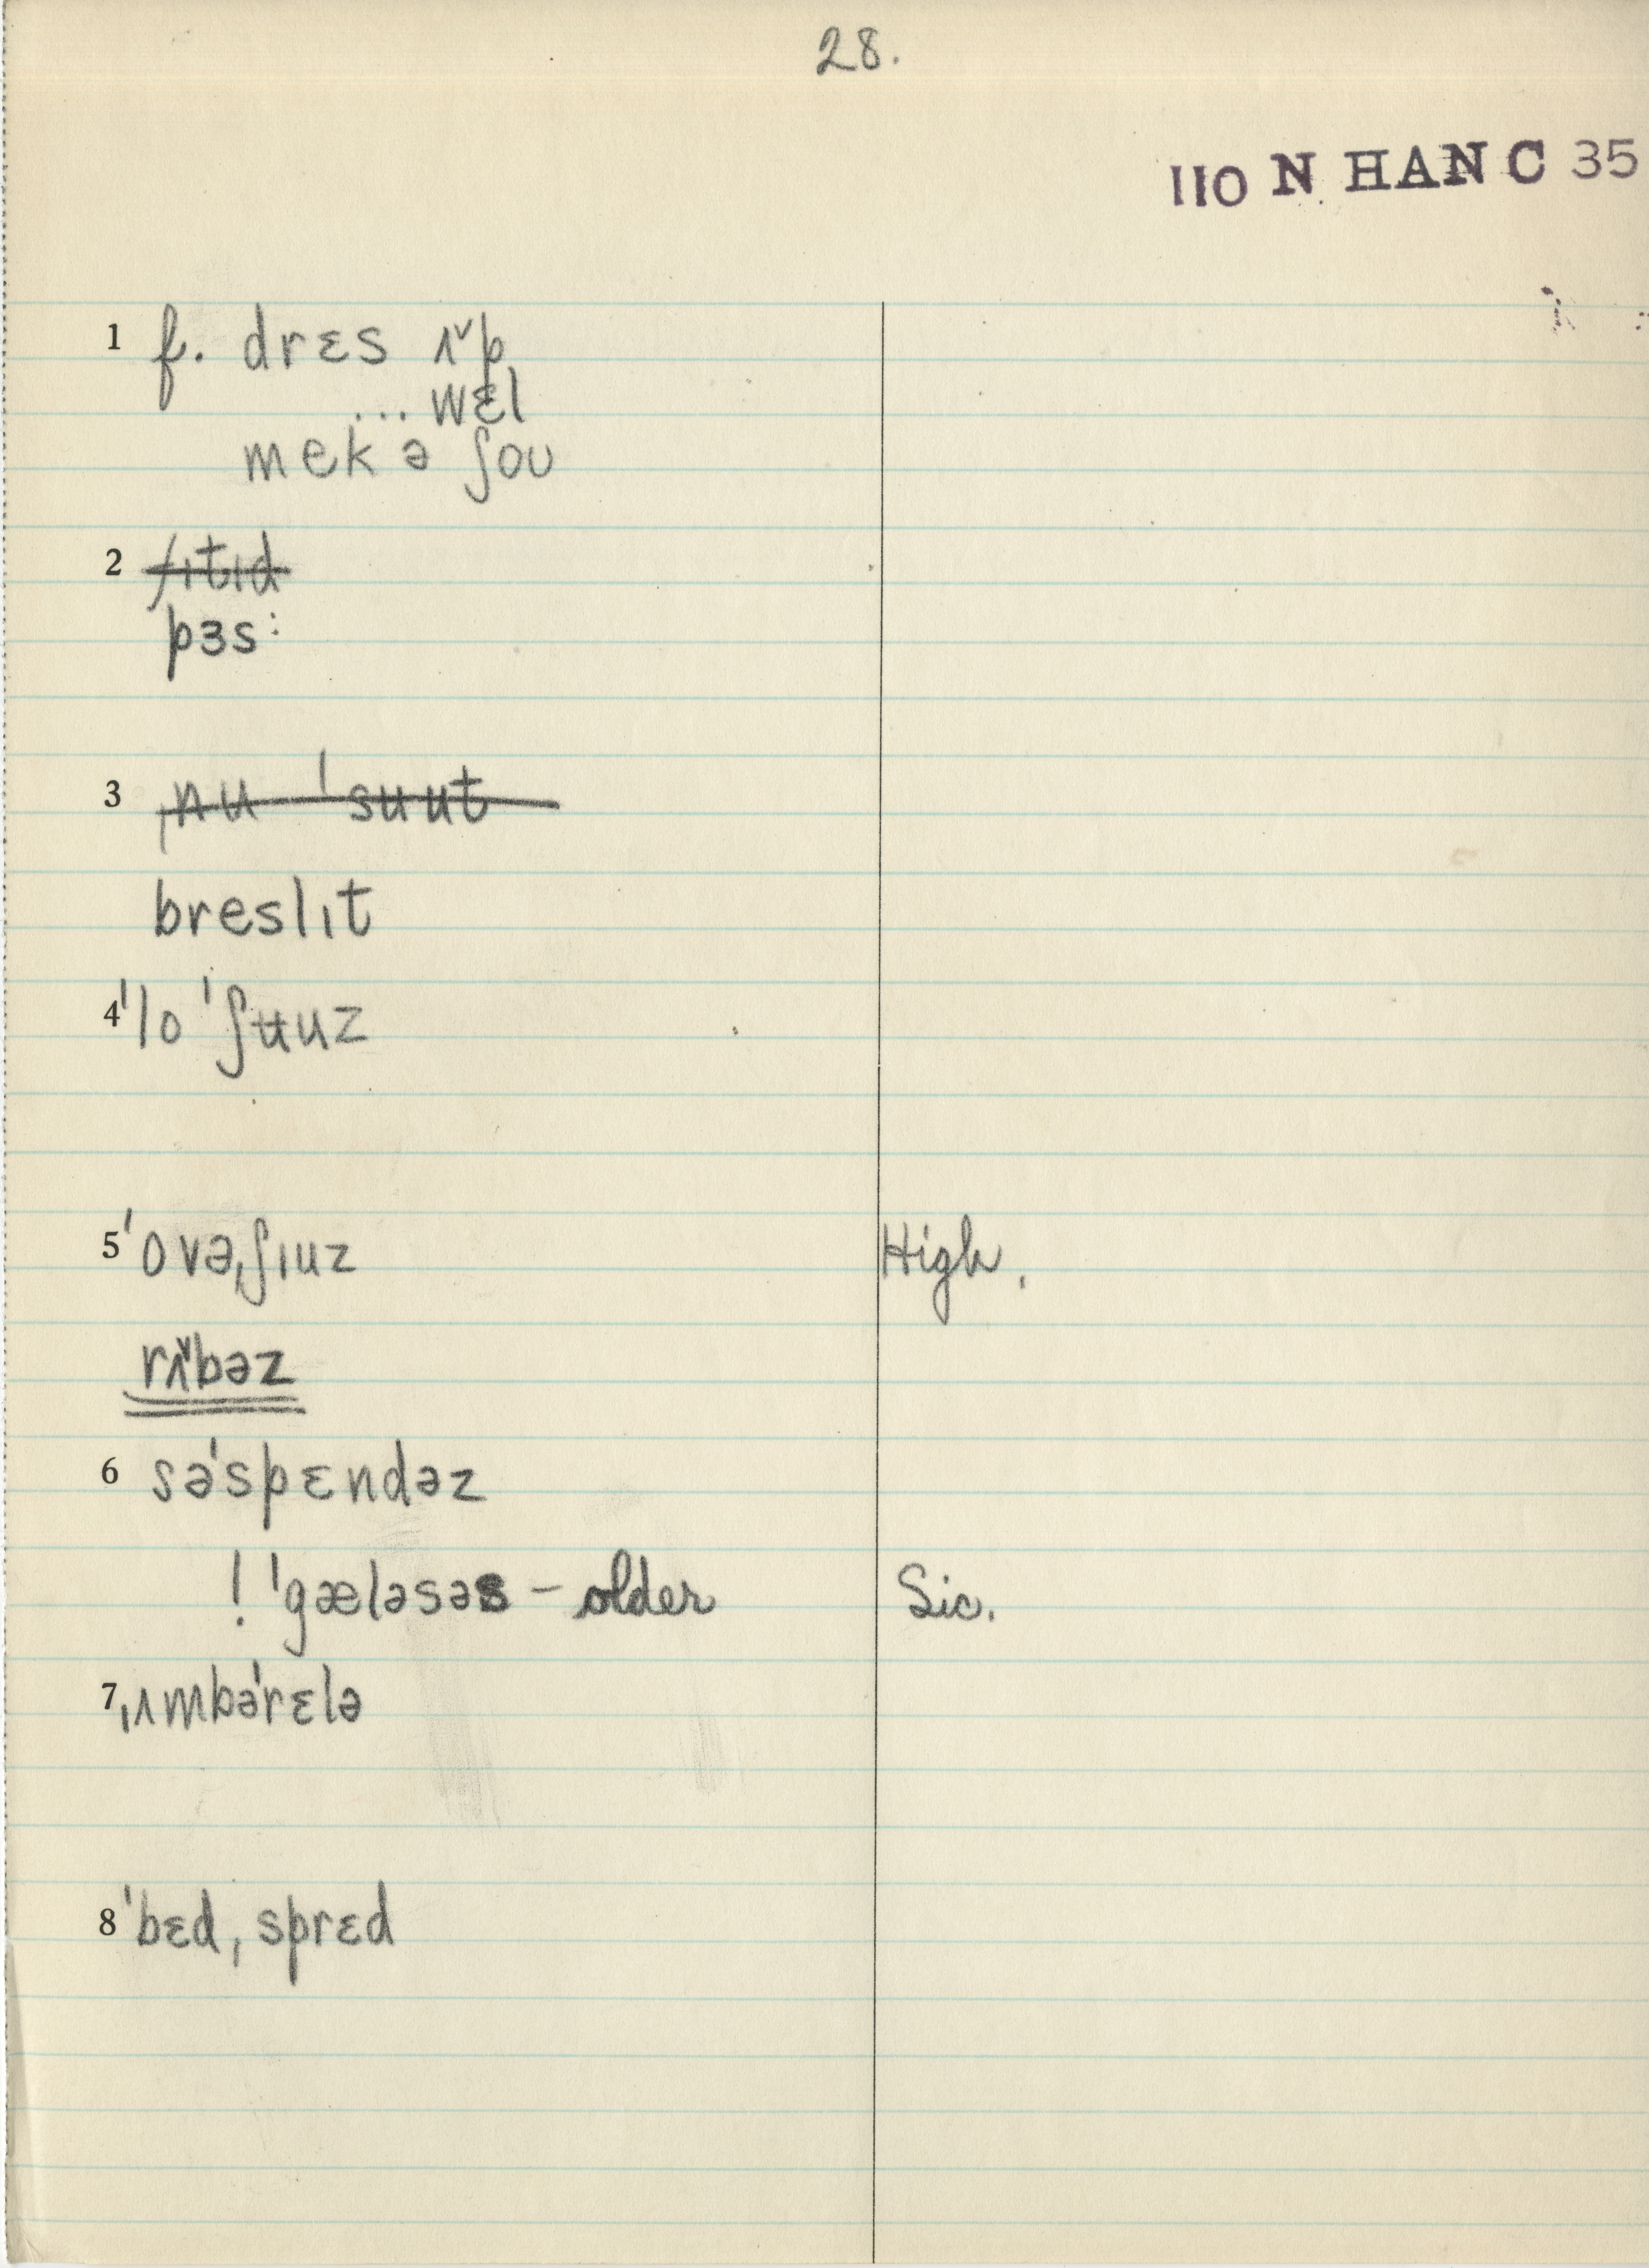 28.
110 N HAN C 35
1 f. drɛs ʌ˅p
... wɛl
mek ə ʃoʊ
2 fɪtɪd
pɜs:
3 ˌnu ˈsuut
breslɪt
4 ˈlo ˈʃʉuz
5 ˈovəˌʃɪuz High.
rʌ˅bəz
6 səˈspɛndəz
! ˈgæləsəs – older Sic.
7 ˌʌmbəˈrɛlə
8 ˈbɛdˌsprɛd